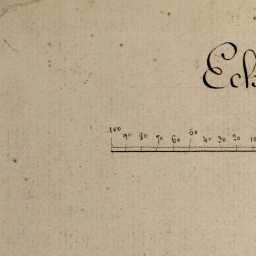 Eck
100 90 80 70 60 50 40 30 20 10